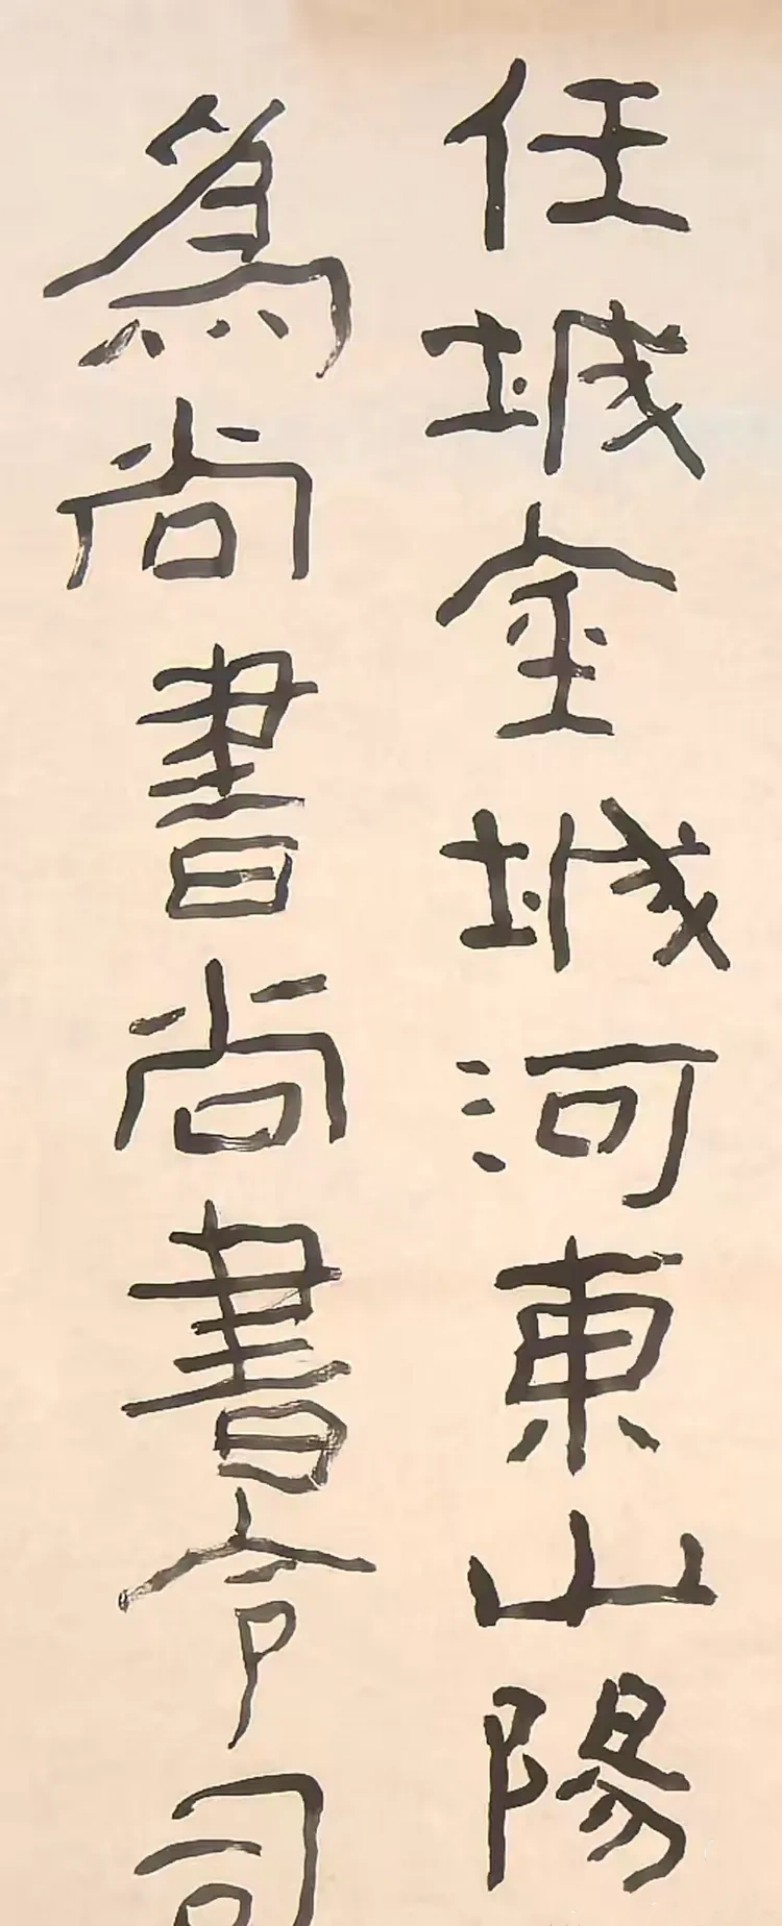 任城金城河東山陽
為尚書尚書令司